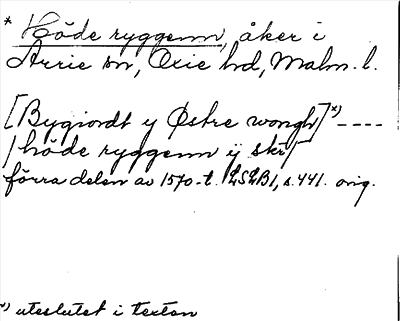 * Höde ryggenn, åker i
Arrie sn, Oxie hd, Malm. l.
[Bygiordt y Østre wongh]*) ----
/ höde ryggenn ij skr/
förra delen av 1570-t. LSLB1, s. 441. orig.
*) uteslutet i texten